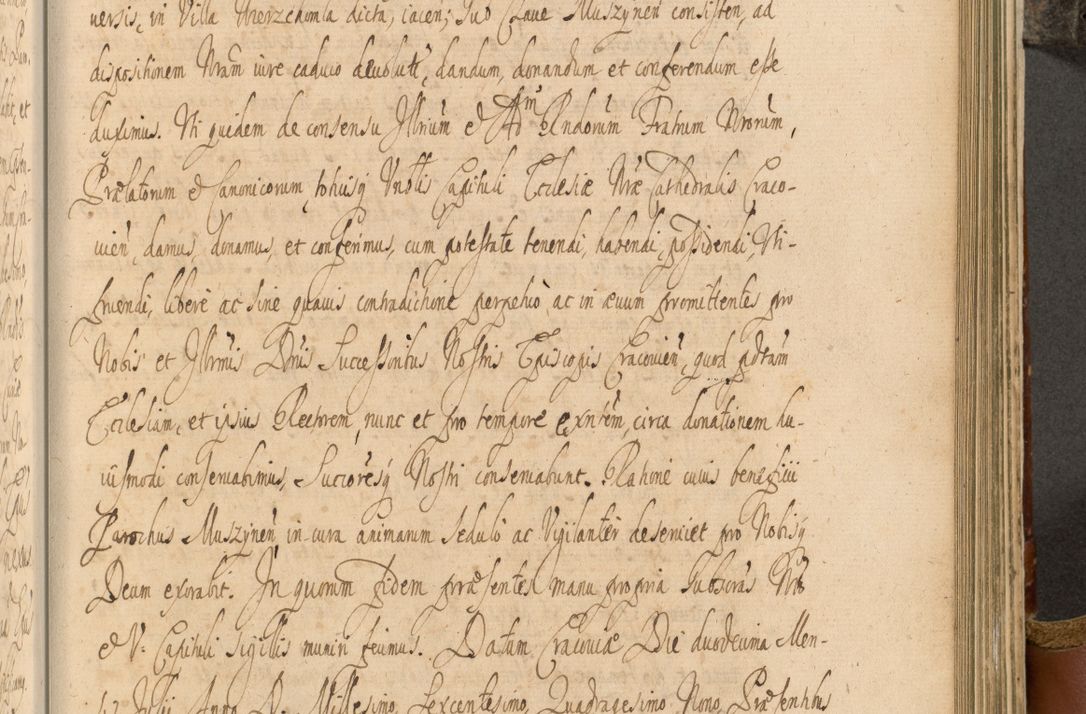 versis, in Villa Mierzedamla dicta, iacen, Sub Clave Muszynen consisten, ad
dispositionem Nram iure caduco devolute, dandum, donandum et conferendum esse
duximus. Uti quidem de consensu Illrium & Adm Rndorum Fratrum Nrorum,
Prælatorum & Canonicorum, totiusq Vnblis Capituli Ecclesiæ Nræ Cathedralis Craco-
vien, damus, donamus, et conferimus, cum potestate tenendi, habendi, possidendi, Uti-
fruendi, libere ac sine quavis contradictione perpetuo ac in ævum promittentes pro
Nobis et Illrmis Dnis Successoribus Nostris Episcopis Cracovien, quod pdtam
Ecclesiam, et ipsius Rectorem, nunc et pro tempore exntem, circa donationem hu-
iusmodi conservabimus, Succoresq Nostri conservabunt. Ratione cuius beneficii
Parochus Muszynen in cura animarum sedulo ac Vigilanter deserviet pro Nobisq
Deum exorabit. In quorum fidem præsentes manu propria Subscras Nro
& V: Capituli sigillis muniri fecimus. Datam Cracoviæ Die duodecima Men-
sis Julii Anno D. Millesimo, Sexcentesimo, Quadragesimo Nono, Præsentibus